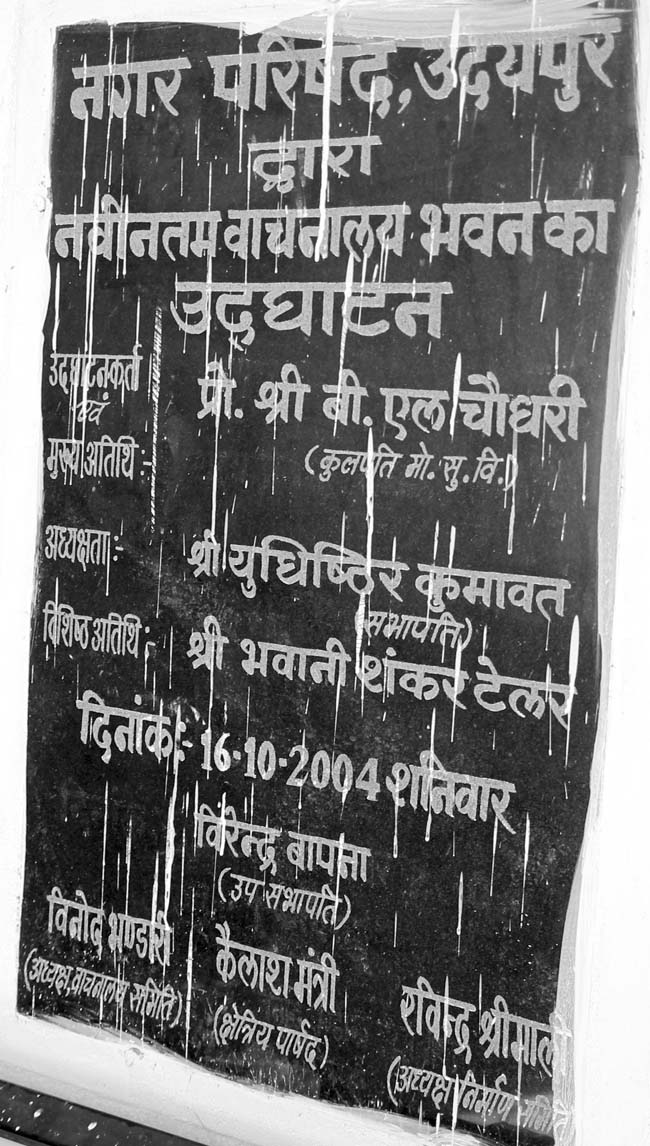 नगर परिषद, उदयपुर
द्वारा
नवीनतम वाचनालय भवन का
उद्घाटन
उदघाटनकर्ता
एवं
मुख्य अतिथि :-
प्रो. श्री बी. एल चौधरी
(कुलपति मो. सु. वि.)
अध्यक्षता :- श्री युधिष्ठिर कुमावत
(सभापति)
विशिष्ठ अतिथि :- श्री भवानी शंकर टेलर
दिनांक :- 16-10-2004 शनिवार
विरेन्द्र बापना
(उप सभापति)
विनोद भण्डारी
(अध्यक्ष वाचनालय समिति)
कैलाश मंत्री
(क्षेत्रिय पार्षद)
रविन्द्र श्रीमाली
(अध्यक्ष निर्माण समिति)